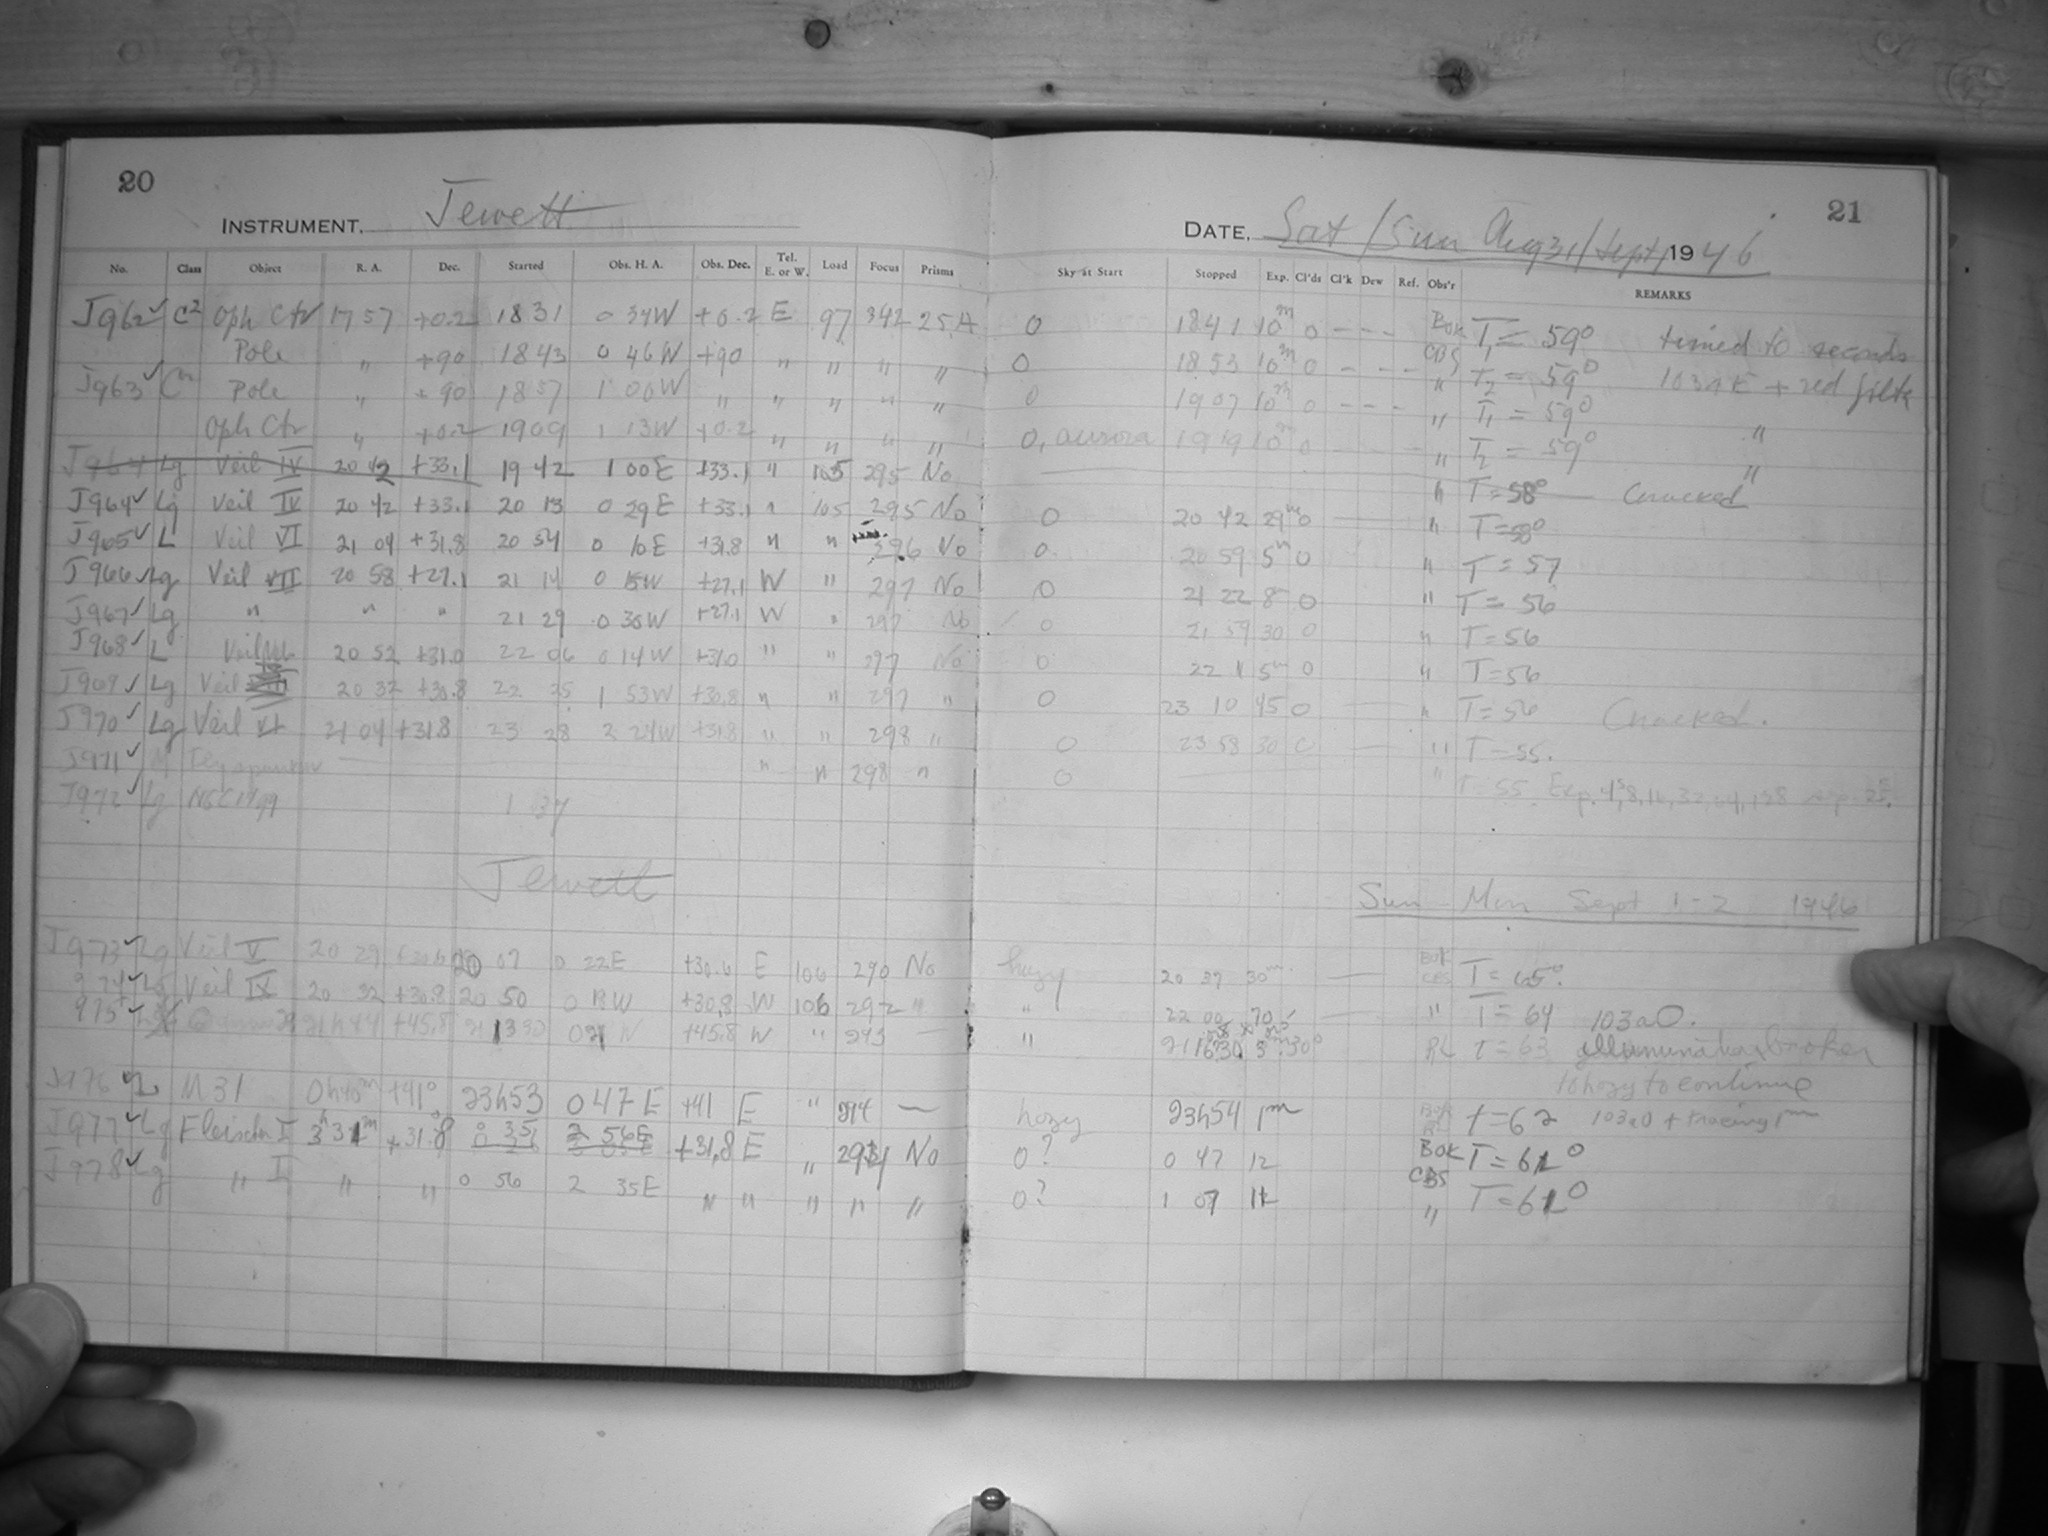 20
INSTRUMENT. Jewett
No. Class Object R. A. Dec. Started Obs. H. A. Obs. Dec. Tel. E. or W. Load Focus Prisms
J962 C2 Oph Ctr 17 57 +0.2 18 31 0 34W +0.2 E 97 342 25A
Pole " +90 18 43 0 46W +90 " " " "
J963 Pole " +90 18 57 1 00W " " " " "
Oph Ctr " +0.2 1909 1 13W +0.2 " " " "
J964 Lg Veil IV 20 42 +33.1 19 42 1 00E +33.1 " 105 295 No
J964 Lg Veil IV 20 42 +33.1 20 13 0 29E +33.1 " 105 295 No
J965 L Veil VI 21 04 +31.8 20 54 0 10E +31.8 " " 296 No
J966 Lg Veil VII 20 58 +27.1 21 14 0 15W +27.1 W " 297 No
J967 Lg " " " 21 29 0 30W +27.1 W " 297 No
J968 L Veil 20 52 +31.0 22 06 0 14W +31.0 " " 297 No
J969 Lg Veil 20 32 +30.8 22 25 1 53W +30.8 " " 297 "
J970 Lg Veil VI 21 04 +31.8 23 28 2 24W +31.8 " " 298 "
J971 " " 298 "
J972 Lg 1 37
Jewett
J973 Lg Veil V 20 29 +30.6 20 07 0 22E +30.6 E 106 290 No
974 Lg Veil IX 20 32 +30.8 20 50 0 18W +30.8 W 106 292 "
975 21h44 +45.8 +45.8 W " 293 —
J976 L M31 0h40m +41° 23h53 0 47E +41 E " 294 —
J977 Lg Fleischer I 3h 31m +31.8 0 35 2 56E +31.8 E " 294 No
J978 Lg " I " " 0 56 2 35E " " " " "
21
DATE, Sat/Sun Aug 31/Sept 1, 1946
Sky at Start Stopped Exp. Cl'ds Cl'k Dew Ref. Obs'r REMARKS
0 18 41 10m 0 - - - BOK T1 = 59° timed to seconds
0 18 53 10m 0 - - - CBS T2 = 59° 103aE + red filter
0 19 07 10m 0 - - - " T1 = 59° "
0, aurora 19 19 10m 0 " T2 = 59° "
" T = 58° Cracked
0 20 42 29m 0 " T = 58°
0 20 59 5m 0 " T = 57
0 21 22 8 0 " T = 56
0 21 59 30 0 " T = 56
0 22 11 5m 0 " T = 56
0 23 10 45 0 " T = 56 Cracked.
0 23 58 30 0 " T = 55.
0 " T = 55. Exp. 4s, 8, 16, 32, 64, 128
Sun Mon Sept 1-2 1946
hazy 20 37 30m BOK CBS T = 65°.
" 22 00 70 " T = 64 103aO.
" RL t = 63 illumination broken
to hazy to continue
hazy 23h54 1m t = 62 103aO + tracing 1m
0? 0 47 12 BOK CBS T = 61°
0? 1 07 11 " T = 61°